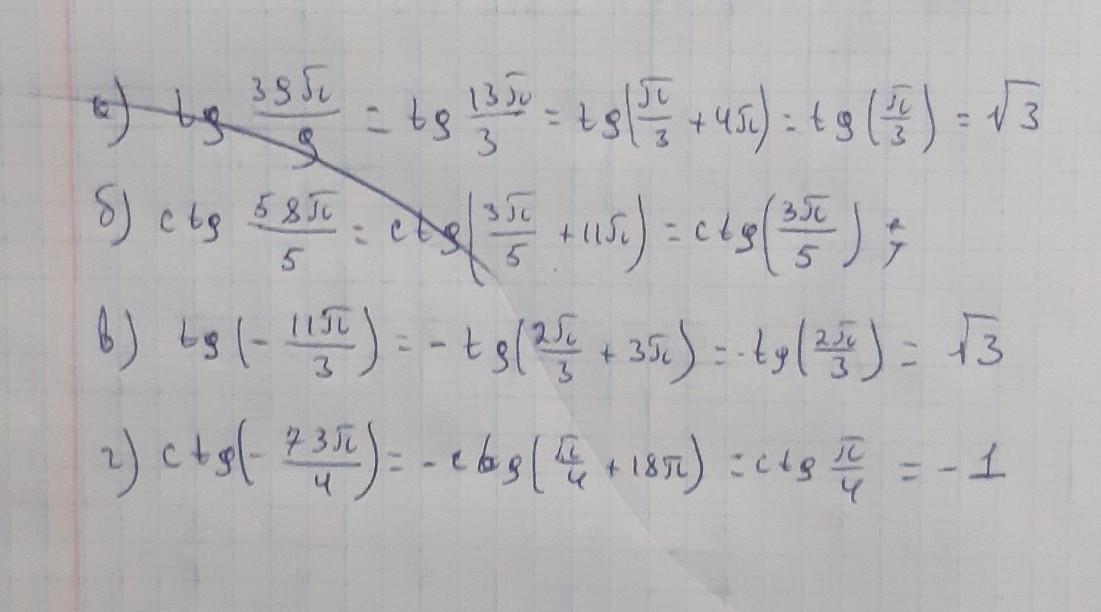 а) tg 39π/9 = tg 13π/3 = tg(π/3 + 4π) = tg(π/3) = √3
б) ctg 58π/5 = ctg(3π/5 + 11π) = ctg(3π/5) ;
в) tg(- 11π/3) = - tg(2π/3 + 3π) = -tg(2π/3) = √3
г) ctg(- 73π/4) = -ctg(π/4 + 18π) = ctg π/4 = - 1